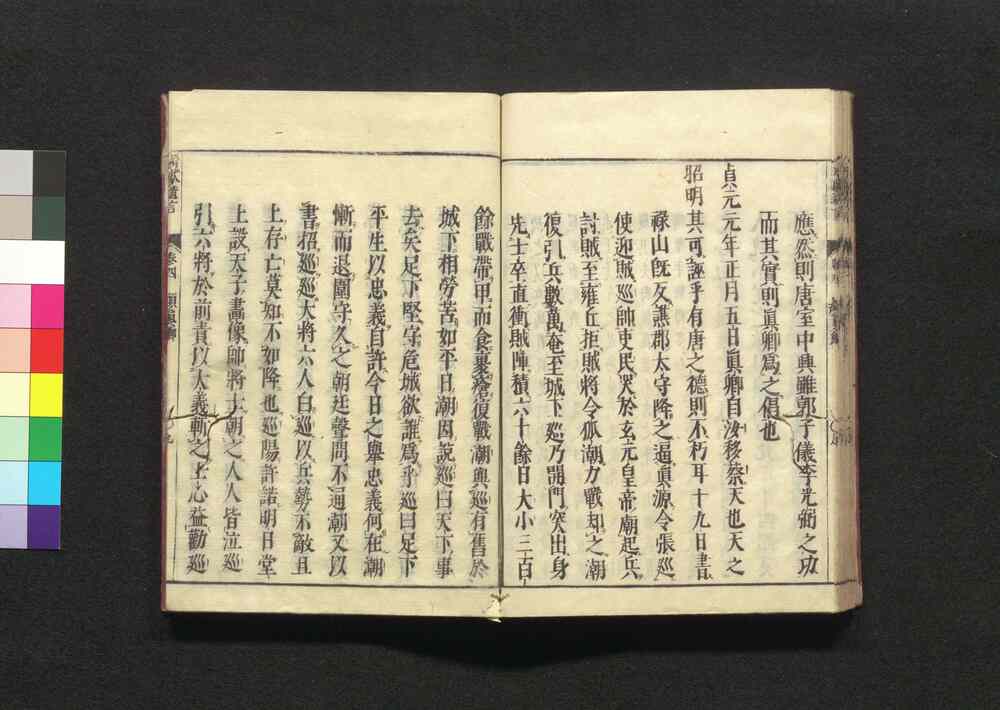 應然則唐室中興雖郭子儀李光弼之功
而其實則眞卿爲之倡也
貞元元年正月五日眞卿自汝移蔡天也天之
昭明其可誣乎有唐之德則不朽耳十九日書
祿山旣反譙郡太守降之逼眞源令張巡
使迎賊巡帥吏民哭於玄元皇帝廟起兵
討賊至雍丘拒賊將令狐潮力戰却之潮
復引兵數萬奄至城下巡乃開門突出身
先士卒直衝賊陣積六十餘日大小三百
餘戰帶甲而食裹瘡復戰潮與巡有舊於
城下相勞苦如平日潮因說巡曰天下事
去矣足下堅守危城欲誰爲乎巡曰足下
平生以忠義自許今日之擧忠義何在潮
慚而退圍守久之朝廷聲問不通潮又以
書招巡巡大將六人白巡以兵勢不敵且
上存亡莫知不如降也巡陽許諾明日堂
上設天子畫像帥將士朝之人人皆泣巡
引六將於前責以大義斬之士心益勸巡
獻遺言 卷四 顏眞卿 九